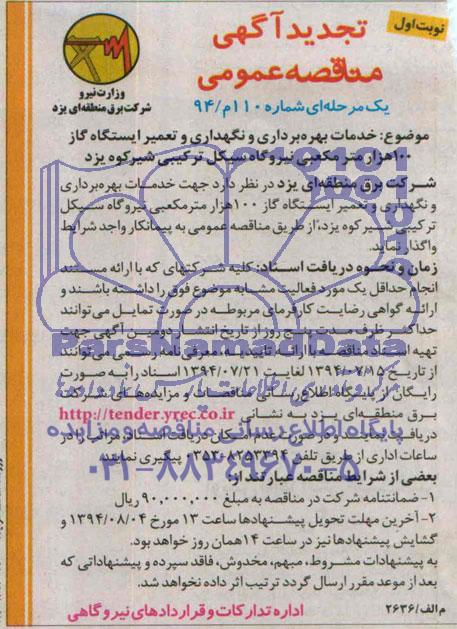 نوبت اول
تجدید آگهی
مناقصه عمومی
یک مرحله‌ای شماره ۱۱۰م/۹۴
وزارت نیرو
شرکت برق منطقه‌ای یزد
موضوع: خدمات بهره‌برداری و نگهداری و تعمیر ایستگاه گاز
۱۰۰هزار متر مکعبی نیروگاه سیکل ترکیبی شیرکوه یزد
شرکت برق منطقه‌ای یزد در نظر دارد جهت خدمات بهره‌برداری
و نگهداری و تعمیر ایستگاه گاز ۱۰۰هزار مترمکعبی نیروگاه سیکل
ترکیبی شیر کوه یزد، از طریق مناقصه عمومی به پیمانکار واجد شرایط
واگذار نماید.
زمان و نحوه دریافت اسناد: کلیه شرکتهای که با ارائه مستند
انجام حداقل یک مورد فعالیت مشابه موضوع فوق را داشته باشند و
ارائه گواهی رضایت کارفرمای مربوطه در صورت تمایل می‌توانند
حداکثر ظرف مدت پنج روز از تاریخ انتشار دومین آگهی جهت
تهیه اسناد مناقصه با ارائه تاییدیه، معرفی‌نامه رسمی می‌توانند
از تاریخ ۱۳۹۴/۰۷/۱۵ لغایت ۱۳۹۴/۰۷/۲۱ اسناد را به صورت
رایگان از پایگاه اطلاع رسانی مناقصات و مزایده‌های شرکت
برق منطقه‌ای یزد به نشانی http://tender.yrec.co.ir
دریافت نمایند و در صورت عدم امکان دریافت اسناد، مراتب را در
ساعات اداری از طریق تلفن ۰۳۵۳۶۲۵۳۳۹۴ پیگیری نمایند.
بعضی از شرایط مناقصه عبارتند از:
۱- ضمانتنامه شرکت در مناقصه به مبلغ ۹۰,۰۰۰,۰۰۰ ریال
۲- آخرین مهلت تحویل پیشنهادها ساعت ۱۳ مورخ ۱۳۹۴/۰۸/۰۴ و
گشایش پیشنهادها نیز در ساعت ۱۴ همان روز خواهد بود.
به پیشنهادات مشروط، مبهم، مخدوش، فاقد سپرده و پیشنهاداتی که
بعد از موعد مقرر ارسال گردد ترتیب اثر داده نخواهد شد.
م الف/۲۶۳۶
اداره تدارکات و قراردادهای نیروگاهی
ParsNamadData
پایگاه اطلاع رسانی مناقصه و مزایده
۰۲۱-۸۸۳۴۹۶۷۰-۵